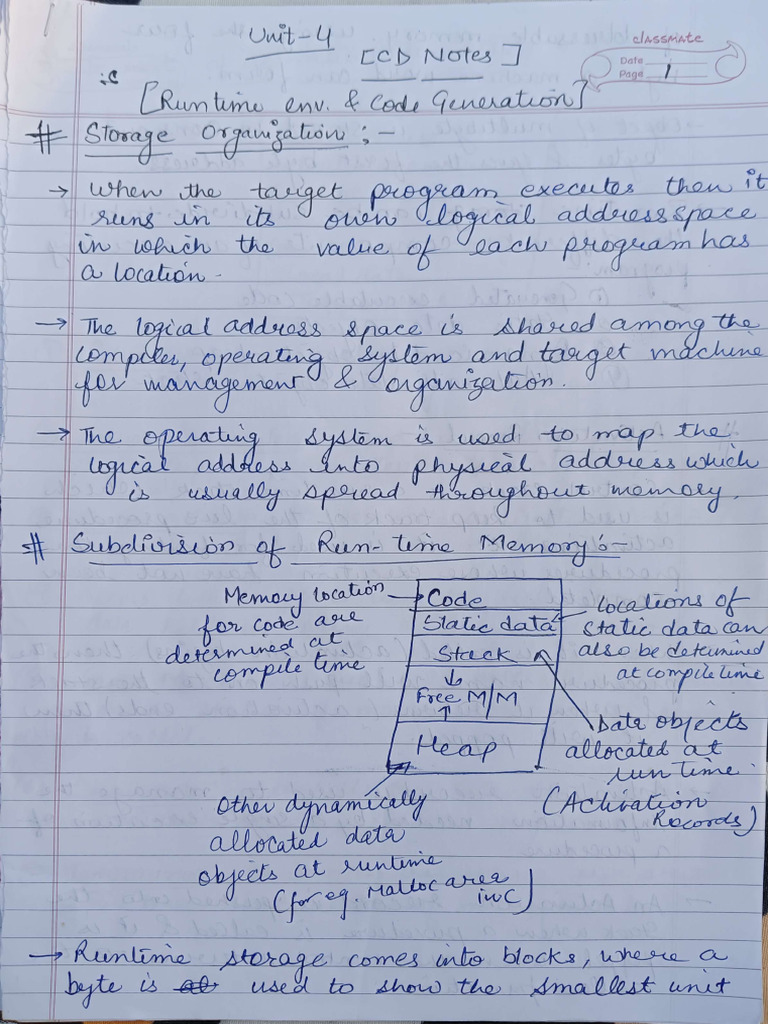 Unit-4
[CD Notes]
classmate
Date
Page 1
[Runtime env. & Code Generation]
# Storage Organization :-
→ When the target program executes then it
runs in its own logical address space
in which the value of each program has
a location.
→ The logical address space is shared among the
compiler, operating system and target machine
for management & organization.
→ The operating system is used to map the
logical address into physical address which
is usually spread throughout memory.
# Subdivision of Run-time Memory :-
Memory location
for code are
determined at
compile time
Code
Static data
Stack
↓
Free M/M
↑
Heap
locations of
static data can
also be determined
at compile time
Data objects
allocated at
run time.
(Activation
Records)
Other dynamically
allocated data
objects at runtime
(for eg. Malloc area
in C)
→ Runtime storage comes into blocks, where a
byte is used to show the smallest unit